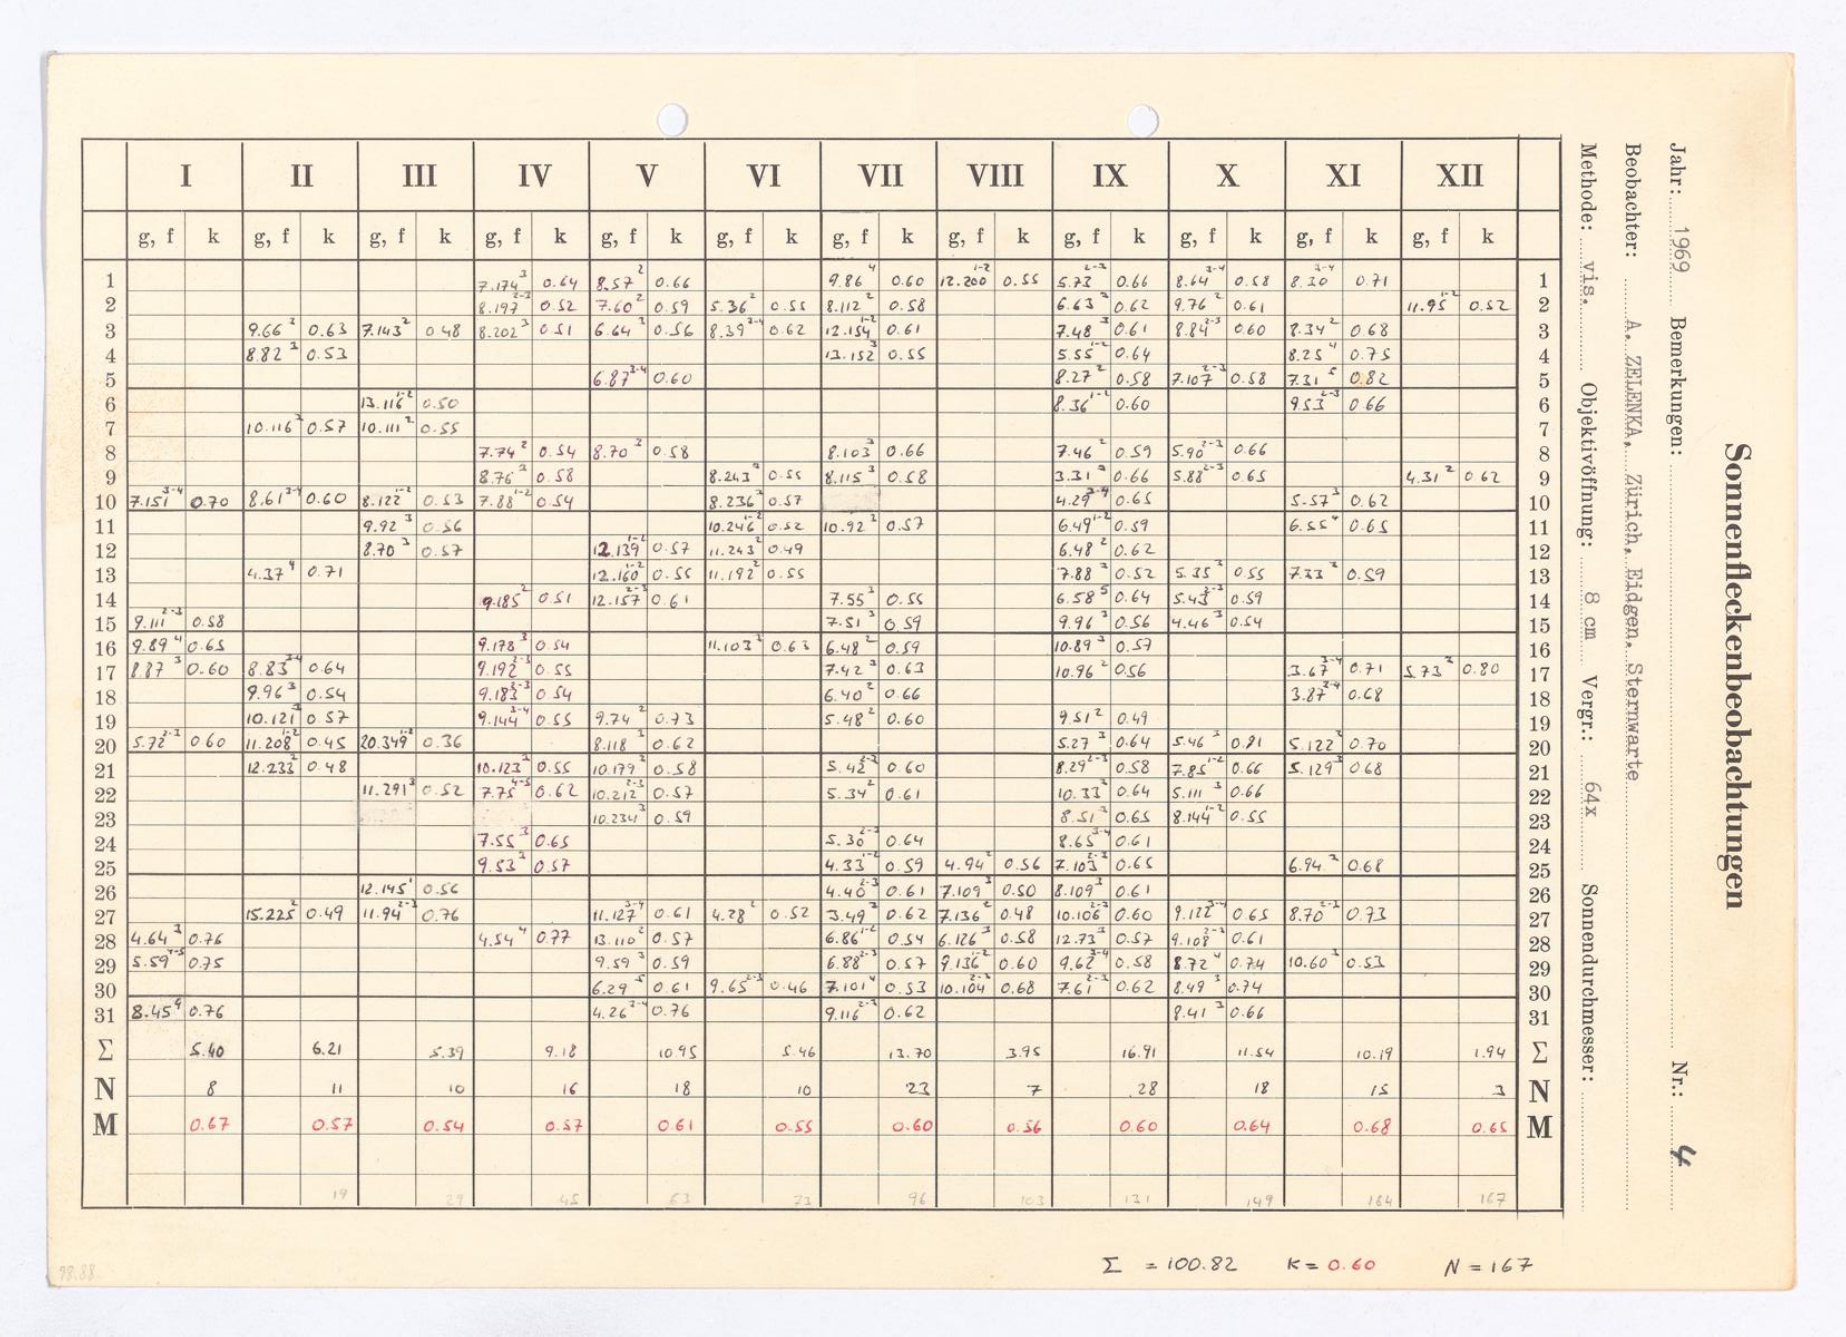 Sonnenfleckenbeobachtungen
Jahr: 1969 Bemerkungen: Nr.: 4
Beobachter: A. ZELENKA, Zürich, Eidgen. Sternwarte
Methode: vis. Objektivöffnung: 8 cm Vergr.: 64x Sonnendurchmesser:
I II III IV V VI VII VIII IX X XI XII
g, f k g, f k g, f k g, f k g, f k g, f k g, f k g, f k g, f k g, f k g, f k g, f k
1 7.174 3 0.64 8.57 2 0.66 9.86 4 0.60 12.200 1-2 0.55 5.73 2-3 0.66 8.64 3-4 0.58 8.30 3-4 0.71 1
2 8.197 2-3 0.52 7.60 2 0.59 5.36 2 0.55 8.112 2 0.58 6.63 2 0.62 9.76 2 0.61 11.95 1-2 0.52 2
3 9.66 2 0.63 7.143 2 0.48 8.202 3 0.51 6.64 3 0.56 8.39 2-4 0.62 12.154 1-2 0.61 7.48 3 0.61 8.84 2-3 0.60 8.34 2 0.68 3
4 8.82 3 0.53 13.152 3 0.55 5.55 1-2 0.64 8.25 4 0.75 4
5 6.87 3-4 0.60 8.27 2 0.58 7.107 2-3 0.58 7.31 5 0.82 5
6 13.116 1-2 0.50 8.36 1-2 0.60 9.53 2-3 0.66 6
7 10.116 3 0.57 10.111 2 0.55 7
8 7.74 2 0.54 8.70 2 0.58 8.103 3 0.66 7.46 2 0.59 5.90 2-3 0.66 8
9 8.76 3 0.58 8.243 2 0.55 8.115 3 0.58 3.31 2 0.66 5.88 2-3 0.65 4.31 2 0.62 9
10 7.151 3-4 0.70 8.61 3-4 0.60 8.122 1-2 0.53 7.88 1-2 0.54 8.236 3 0.57 4.29 3-4 0.65 5.57 3 0.62 10
11 9.92 3 0.56 10.246 1-2 0.52 10.92 2 0.57 6.49 1-2 0.59 6.55 4 0.65 11
12 8.70 3 0.57 12.139 1-2 0.57 11.243 2 0.49 6.48 2 0.62 12
13 4.37 4 0.71 12.160 1-2 0.55 11.192 2 0.55 7.88 2 0.52 5.35 3 0.55 7.33 2 0.59 13
14 9.185 2 0.51 12.157 2-3 0.61 7.55 3 0.55 6.58 5 0.64 5.43 2-3 0.59 14
15 9.111 2-3 0.58 7.51 3 0.59 9.96 3 0.56 4.46 3 0.54 15
16 9.89 4 0.65 9.178 3 0.54 11.103 2 0.63 6.48 2 0.59 10.89 3 0.57 16
17 8.87 3 0.60 8.83 3-4 0.64 9.192 2-3 0.55 7.42 3 0.63 10.96 2 0.56 3.67 3-4 0.71 5.73 2 0.80 17
18 9.96 3 0.54 9.183 2-3 0.54 6.40 2 0.66 3.87 3-4 0.68 18
19 10.121 3 0.57 9.144 3-4 0.55 9.74 2 0.73 5.48 2 0.60 9.51 2 0.49 19
20 5.72 2-3 0.60 11.208 1-2 0.45 20.349 1-2 0.36 8.118 3 0.62 5.27 3 0.64 5.46 3 0.81 5.122 3 0.70 20
21 12.233 2 0.48 10.123 2 0.55 10.179 2 0.58 5.42 2-3 0.60 8.29 2-3 0.58 7.85 1-2 0.66 5.129 3 0.68 21
22 11.291 3 0.52 7.75 4-5 0.62 10.212 2-3 0.57 5.34 2 0.61 10.33 2 0.64 5.111 3 0.66 22
23 10.234 3 0.59 8.51 3 0.65 8.144 1-2 0.55 23
24 7.55 3 0.65 5.30 2-3 0.64 8.65 3-4 0.61 24
25 9.53 2 0.57 4.33 1-2 0.59 4.94 2 0.56 7.103 2-3 0.65 6.94 2 0.68 25
26 12.145 1 0.56 4.40 2-3 0.61 7.109 3 0.50 8.109 3 0.61 26
27 15.225 2 0.49 11.94 2-3 0.76 11.127 3-4 0.61 4.28 2 0.52 3.49 3 0.62 7.136 2 0.48 10.106 2-3 0.60 9.122 3-4 0.65 8.70 2-3 0.73 27
28 4.64 3 0.76 4.54 4 0.77 13.110 2 0.57 6.86 1-2 0.54 6.126 3 0.58 12.73 3 0.57 9.108 2-3 0.61 28
29 5.59 4-5 0.75 9.59 3 0.59 6.88 2-3 0.57 9.136 1-2 0.60 9.62 3-4 0.58 8.72 4 0.74 10.60 3 0.53 29
30 6.29 5 0.61 9.65 2-3 0.46 7.101 4 0.53 10.104 2-3 0.68 7.61 2-3 0.62 8.49 3 0.74 30
31 8.45 4 0.76 4.26 3-4 0.76 9.116 2-3 0.62 8.41 3 0.66 31
Σ 5.40 6.21 5.39 9.18 10.95 5.46 13.70 3.95 16.91 11.54 10.19 1.94 Σ
N 8 11 10 16 18 10 23 7 28 18 15 3 N
M 0.67 0.57 0.54 0.57 0.61 0.55 0.60 0.56 0.60 0.64 0.68 0.65 M
19 29 45 63 73 96 103 131 149 164 167
Σ = 100.82 K = 0.60 N = 167
98.88